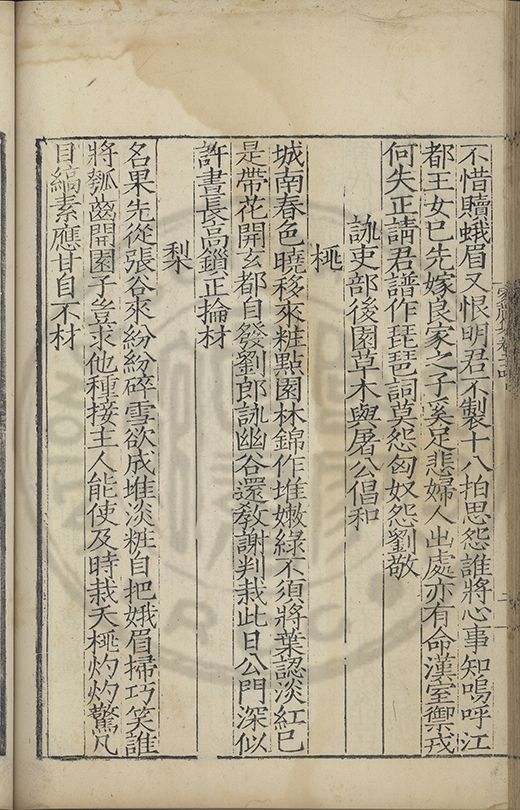 不惜贖蛾眉又恨明君不製十八拍思怨誰將心事知嗚呼江
都王女已先嫁良家之子奚足悲婦人出處亦有命漢室御戎
何失正請君譜作琵琶詞莫怨匈奴怨劉敬
詠吏部後園草木與屠公倡和
桃
城南春色曉移來粧點園林錦作堆嫩綠不須將葉認淡紅巳
是帶花開玄都自發劉郎詠幽谷還教謝判栽此日公門深似
許晝長高鎖正掄材
梨
名果先從張谷來紛紛碎雪欲成堆淡粧自把娥眉掃巧笑誰
將瓠齒開園子豈求他種接主人能使及時栽夭桃灼灼驚凡
目縞素應甘自不材